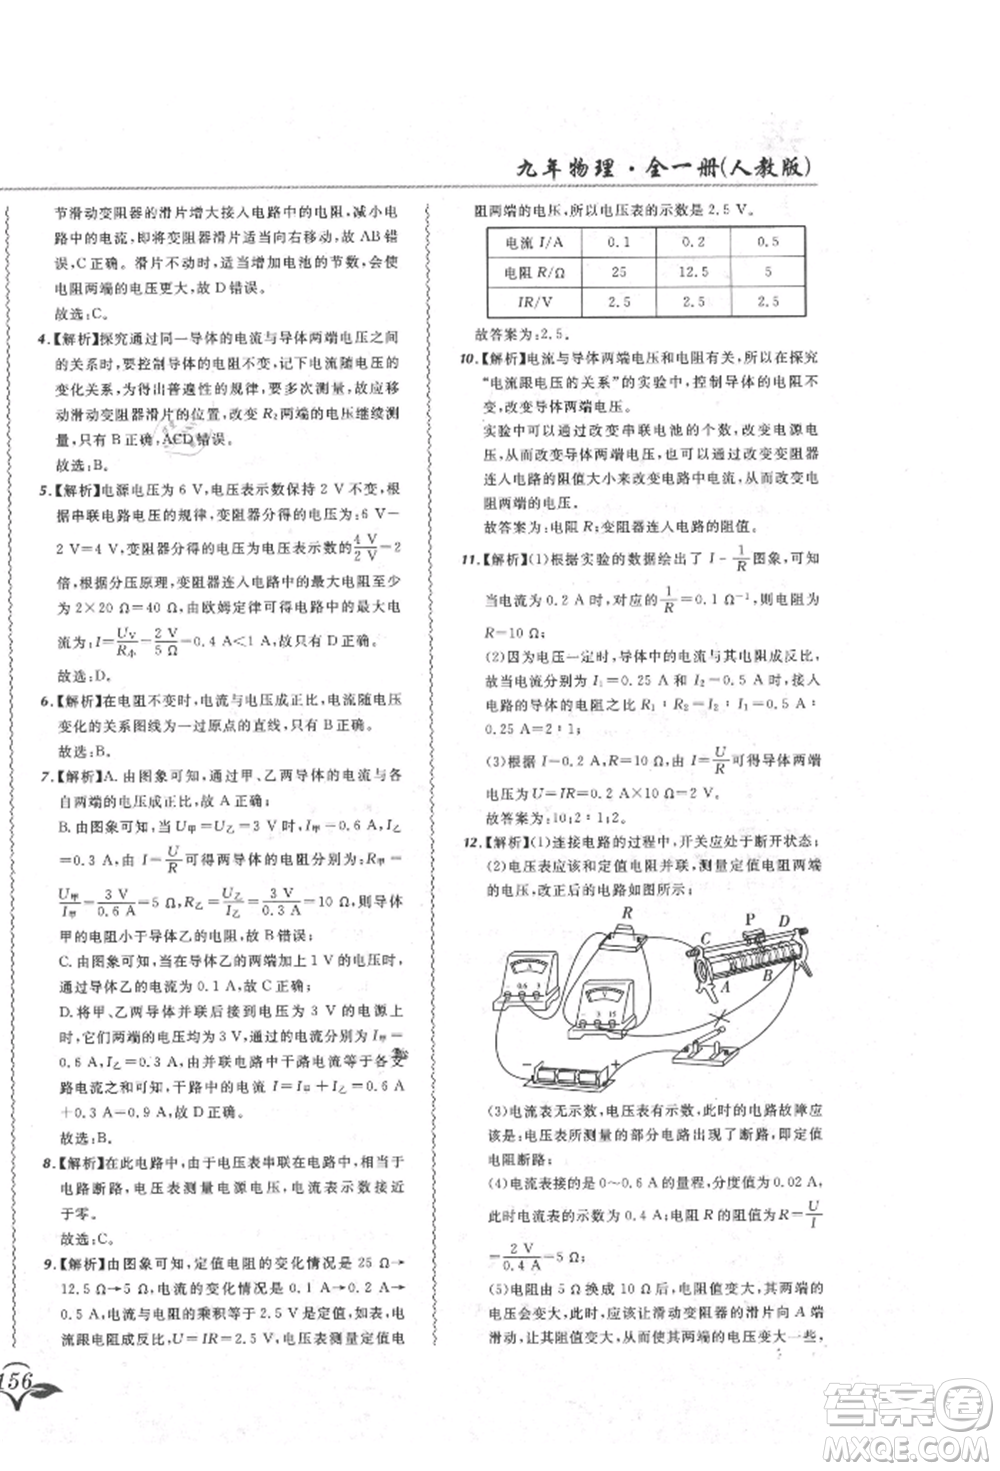 九年物理·全一册(人教版)
节滑动变阻器的滑片增大接入电路中的电阻,减小电
路中的电流,即将变阻器滑片适当向右移动,故 AB 错
误,C 正确;滑片不动时,适当增加电池的节数,会使
电阻两端的电压更大,故 D 错误。
故选:C。
4.【解析】探究通过同一导体的电流与导体两端电压之间
的关系时,要控制导体的电阻不变,记下电流随电压的
变化关系,为得出普遍性的规律,要多次测量,故应移
动滑动变阻器滑片的位置,改变 R₂两端的电压继续测
量,只有 B 正确,ACD 错误。
故选:B。
5.【解析】电源电压为 6 V,电压表示数保持 2 V 不变,根
据串联电路电压的规律,变阻器分得的电压为 6 V−
2 V=4 V,变阻器分得的电压为电压表示数的 4 V/2 V=2
倍,根据分压原理,变阻器连入电路中的电阻
为 2×20 Ω=40 Ω,由欧姆定律可得电路中的最大电
流为:I=U_V/R_小=2 V/5 Ω=0.4 A<1 A
故选:D。
6.【解析】在电阻不变时,电流与电压成正比,电流随电压
变化的关系图线为一过原点的直线,
故选:B。
7.【解析】A. 由图象可知,通过甲、乙两导体的电流与各
自两端的电压成正比,故 A 正确;
B. 由图象可知,当 U甲=U乙=3 V 时,I甲=0.6 A,I乙
=0.3 A,由 I=U/R 可得两导体的电阻分别为 R甲=
U甲/I甲=3 V/0.6 A=5 Ω,R乙=U乙/I乙=3 V/0.3 A=10 Ω,则导体
甲的电阻小于导体乙的电阻,故 B 错误;
C. 由图象可知,当导体乙的两端加上 1 V 的电压时,
通过导体乙的电流为 0.1 A,故 C 正确;
D. 将甲、乙两导体并联后接到电压为 3 V 的电源上
时,它们两端的电压均为 3 V,则电流分别为 I甲=
0.6 A、I乙=0.3 A,因并联电路中干路电流等于各支
路电流之和,所以,干路中的电流 I=I甲+I乙=0.6 A
+0.3 A=0.9 A,故 D 正确。
故选:B。
8.【解析】在此电路中,由于电压表串联在电路中,所以
电路断路,电压表测量电源电压,电流表示数接近
于零。
故选:C。
9.【解析】由图象可知,定值电阻的变化情况是 25 Ω→
12.5 Ω→5 Ω,电流的变化情况是 0.1 A→0.2 A→
0.5 A,电流与电阻的乘积等于 2.5 V 是定值,故定
流跟电阻成反比,U=IR=2.5 V,因为 U=IR 是定值电
156
阻两端的电压,所以电压表的示数是 2.5 V。
电流 I/A 0.1 0.2 0.5
电阻 R/Ω 25 12.5 5
IR/V 2.5 2.5 2.5
故答案为:2.5。
10.【解析】电流与导体两端电压和电阻有关,所以在探究
“电流跟电压的关系”的实验中,控制导体的电阻不
变,改变导体两端电压。
实验中可以通过改变串联电池的个数,改变电源电
压,从而改变导体两端电压,也可以通过改变变阻器
连入电路的阻值大小来改变电路中电流,从而改变电
阻两端的电压。
故答案为:电阻 R;变阻器连入电路的阻值。
11.【解析】(1)根据实验的数据绘出了 I－1/R图象,可知
当电流为 0.2 A 时,对应的 1/R=0.1 Ω⁻¹,则电阻
R=10 Ω;
(2)因为电压一定时,导体的电流与其电阻成反比,
电流分别为 I₁=0.25 A 与 I₂=0.5 A 时,接入
电路的导体的电阻之比为:R₁∶R₂=I₂∶I₁=0.5 A∶
0.25 A=2∶1;
(3)根据 I=0.2 A,R=10 Ω,由 I=U/R可得导体两端
电压为:U=IR=0.2 A×10 Ω=2 V。
故答案为:10;2∶1;2。
12.【解析】(1)连接电路的过程中,开关应处于断开状态;
(2)电压表应该和定值电阻并联,测量定值电阻两端
的电压,改正后的电路如图所示:
R
P
C
D
A
B
A
V
− 0.6 3
− 3 15
−
+
(3)电流表无示数,电压表有示数,此时的电路故障应
该是:电压表所测量的部分电路出现了断路,即定值
电阻断路;
(4)电流表接的是 0～0.6 A 的量程,分度值为 0.02 A,
此时电流表的示数为 0.4 A;电阻 R 的阻值为 R=U/I
=2 V/0.4 A=5 Ω;
(5)定值电阻由 5 Ω换成 10 Ω,电阻值变大,其两端的
电压会变大,应该让滑动变阻器的滑片向 A 端
滑动,让其阻值变大,从而使其两端的电压变大一些,
答案圈
MXQE.COM